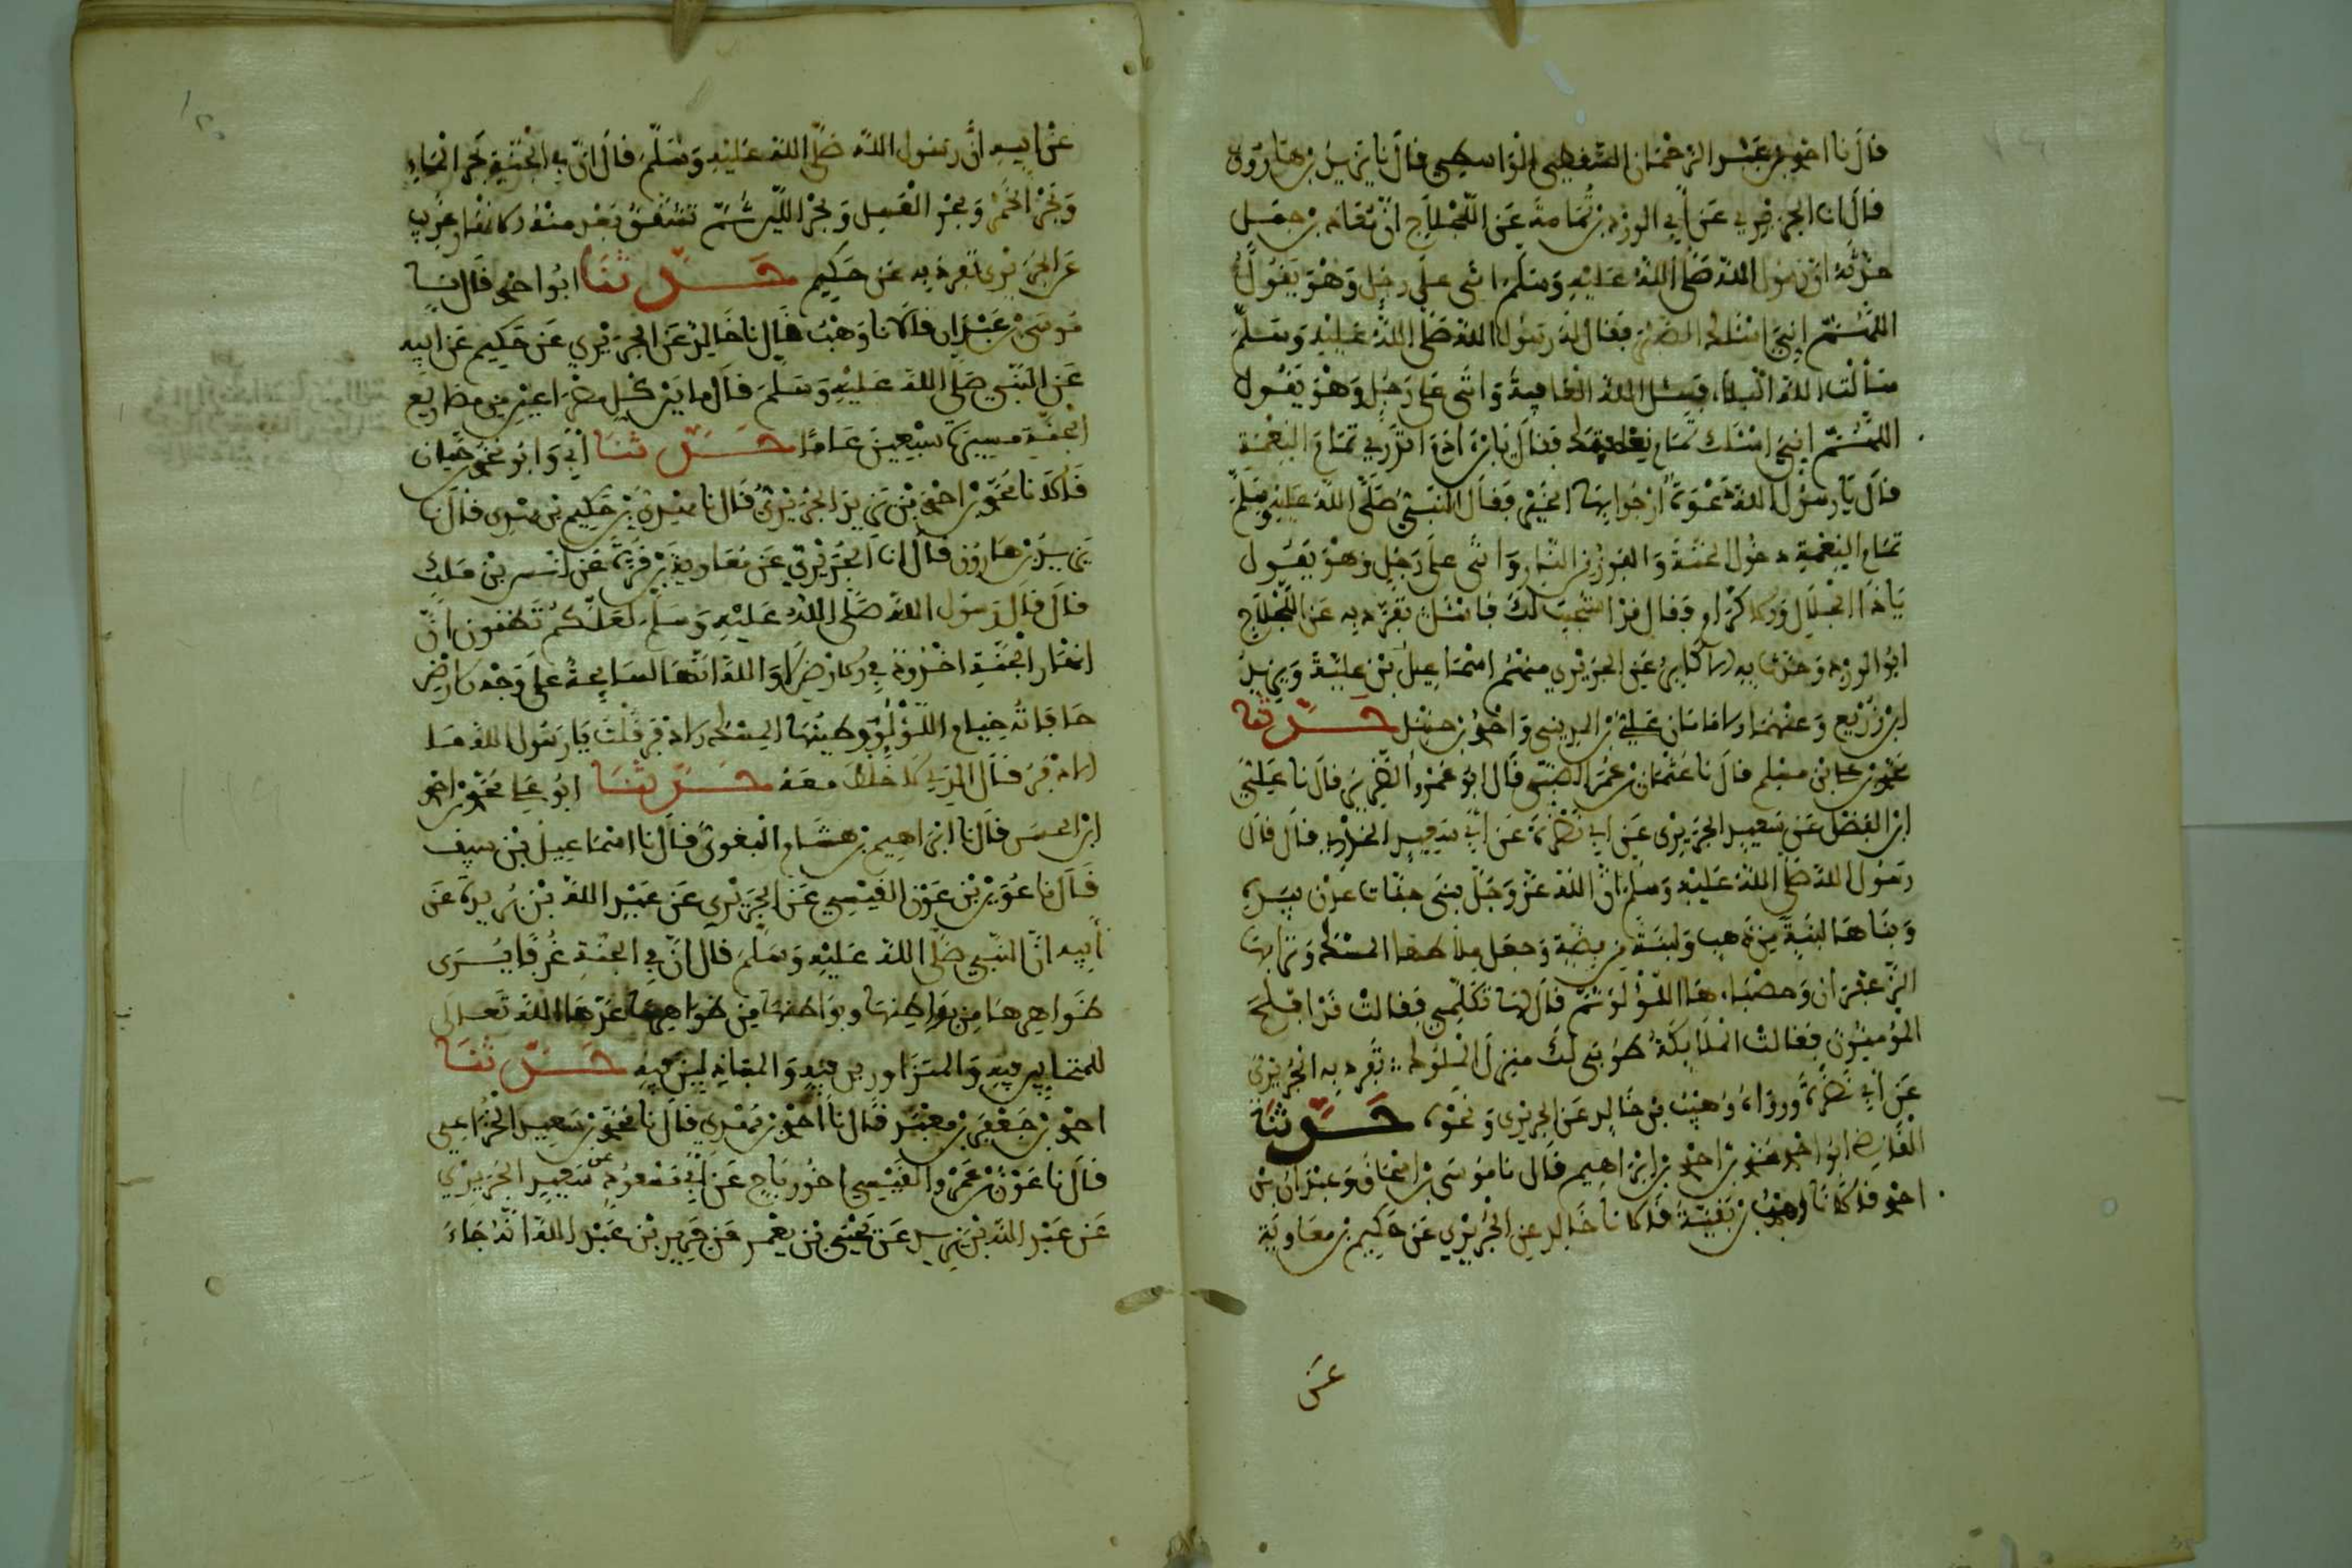 قال نا احمد بن عبد الرحمان السقطي الواسطي قال نا يزيد بن هارون
قال انا الجريري عن أبي الورد بن ثمامة عن اللجلاج ان معاذ بن جبل
حدثه ان رسول الله صلى الله عليه وسلم اتى على رجل وهو يقول
اللهم إني اسئلك الصبر فقال له رسول الله صلى الله عليه وسلم
سألت الله البلاء فسئل الله العافية واتى على رجل وهو يقول
اللهم إني اسئلك تمام نعمتك فقال يا بن ادم اتدري تمام النعمة
قال يا رسول الله دعوة أرجوا بها الخير فقال النبي صلى الله عليه وسلم
تمام النعمة دخول الجنة والفوز من النار واتى على رجل وهو يقول
يا ذا الجلال والاكرام فقال قد استجيب لك فاسئل تفرد به عن اللجلاج
ابو الورد وحدث به الاكابر عن الجريري منهم اسماعيل بن علية ويزيد
ابن زريع وعنهما الامامان علي بن المديني واحمد بن حنبل حدثنا
محمد بن علي بن مسلم قال نا عثمان بن عمر الضبي قال ابو عمرو الضرير قال نا علي
ابن الفضل عن سعيد الجريري عن ابي نضرة عن أبي سعيد الخدري قال قال
رسول الله صلى الله عليه وسلم ان الله عز وجل بنى جنات عدن بيده
وبناها لبنة من ذهب ولبنة من فضة وجعل ملاطها المسك وترابها
الزعفران وحصباءها اللؤلؤ ثم قال لها تكلمي فقالت قد افلح
المؤمنون فقالت الملائكة طوبى لك منزل الملوك تفرد به الجريري
عن أبي نضرة ورواه وهيب بن خالد عن الجريري نحوه حدثنا
القاضي ابو احمد محمد بن احمد بن ابراهيم قال نا موسى بن اسحاق وعبدان بن
احمد قالا نا وهب بن بقية قالا نا خالد عن الجريري عن حكيم بن معاوية
عن
عن ابيه أن رسول الله صلى الله عليه وسلم قال ان في الجنة بحر الماء
وبحر الخمر وبحر العسل وبحر اللبن ثم تشقق بعد منه الانهار غريب
عن الجريري تفرد به عن حكيم حدثنا ابو احمد قال نا
موسى بن عبدان قالا نا وهب قال نا خالد عن الجريري عن حكيم عن ابيه
عن النبي صلى الله عليه وسلم قال ما بين كل مصراعين من مصاريع
الجنة مسيرة سبعين عاما حدثنا أبي وابو محمد بن حيان
قالا نا محمد بن احمد بن يزيد الجريري قال نا مهدي بن حكيم بن مهدي قال نا
يزيد بن هارون قال انا الجريري عن معاوية بن قرة عن انس بن ملك
قال قال رسول الله صلى الله عليه وسلم لعلكم تظنون ان
انهار الجنة اخدود في الارض لا والله انها لسايحة على وجه الارض
حافاته خيام اللؤلؤ وطينها المسك الاذفر قلت يا رسول الله ما
الاذفر قال الذي لا خلط معه حدثنا ابو علي محمد بن احمد
ابن الحسن قال نا ابراهيم بن هشام البغوي قال نا اسماعيل بن سيف
قال نا عويد بن عون القيسي عن الجريري عن عبد الله بن بريدة عن
أبيه ان النبي صلى الله عليه وسلم قال ان في الجنة غرفا يرى
ظواهرها من بواطنها وبواطنها من ظواهرها اعدها الله تعالى
للمتحابين فيه والمتزاورين فيه والمتباذلين فيه حدثنا
احمد بن جعفر بن معبد قال نا احمد بن مهدي قال نا محمد بن سعيد الخزاعي
قال نا عون بن عمرو القيسي اخو رياح عن أبي مسعود سعيد الجريري
عن عبد الله بن بريدة عن يحيى بن يعمر عن جرير بن عبد الله انه جاء